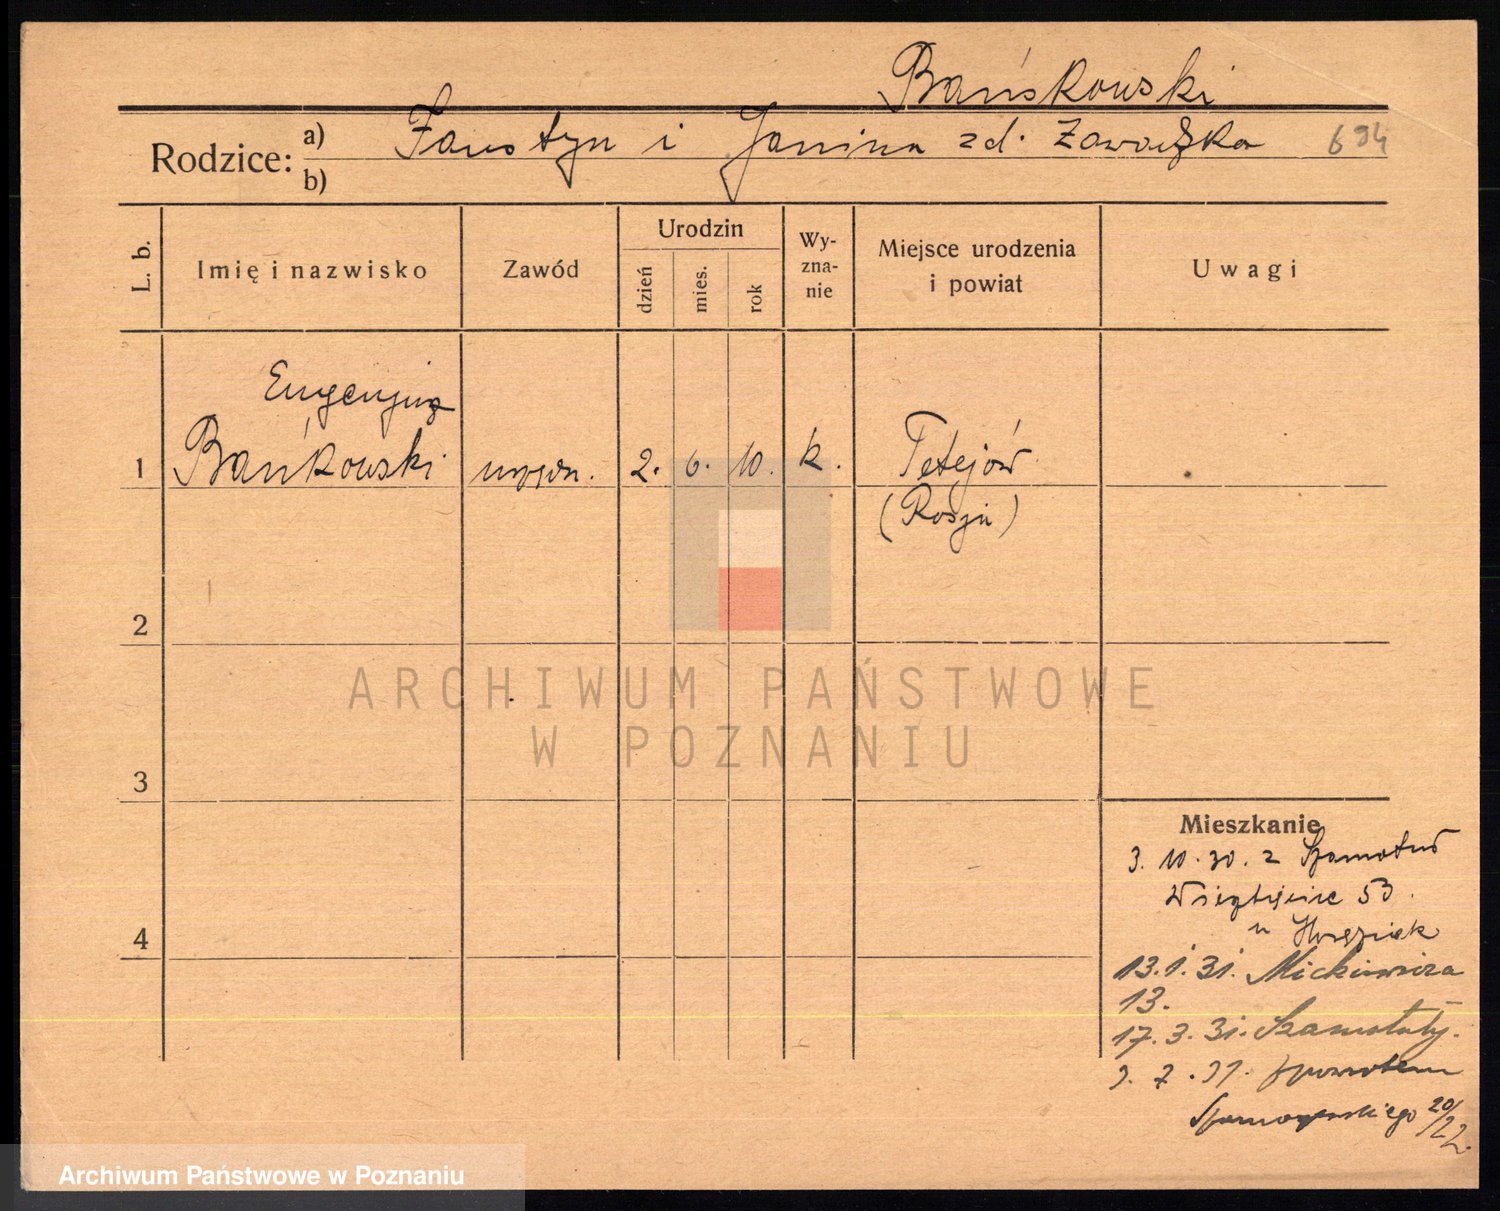 Bańkowski
Rodzice: a) Faustyn i Janina zd. Zawadzka 694
b)
L. b. Imię i nazwisko Zawód Urodzin dzień mies. rok Wy-zna-nie Miejsce urodzenia i powiat Uwagi
Eugenjusz
1 Bańkowski 2. 6. 10. k. Tetejów
(Rosja)
2
ARCHIWUM PAŃSTWOWE
W POZNANIU
3
Mieszkanie
3. 10. 30. z Szamotuł
53.
4 u
13.1.31. Mickiewicza
13.
17.3.31. Szamotuły.
3. 7. 31. zpowrotem
20/22.
Archiwum Państwowe w Poznaniu